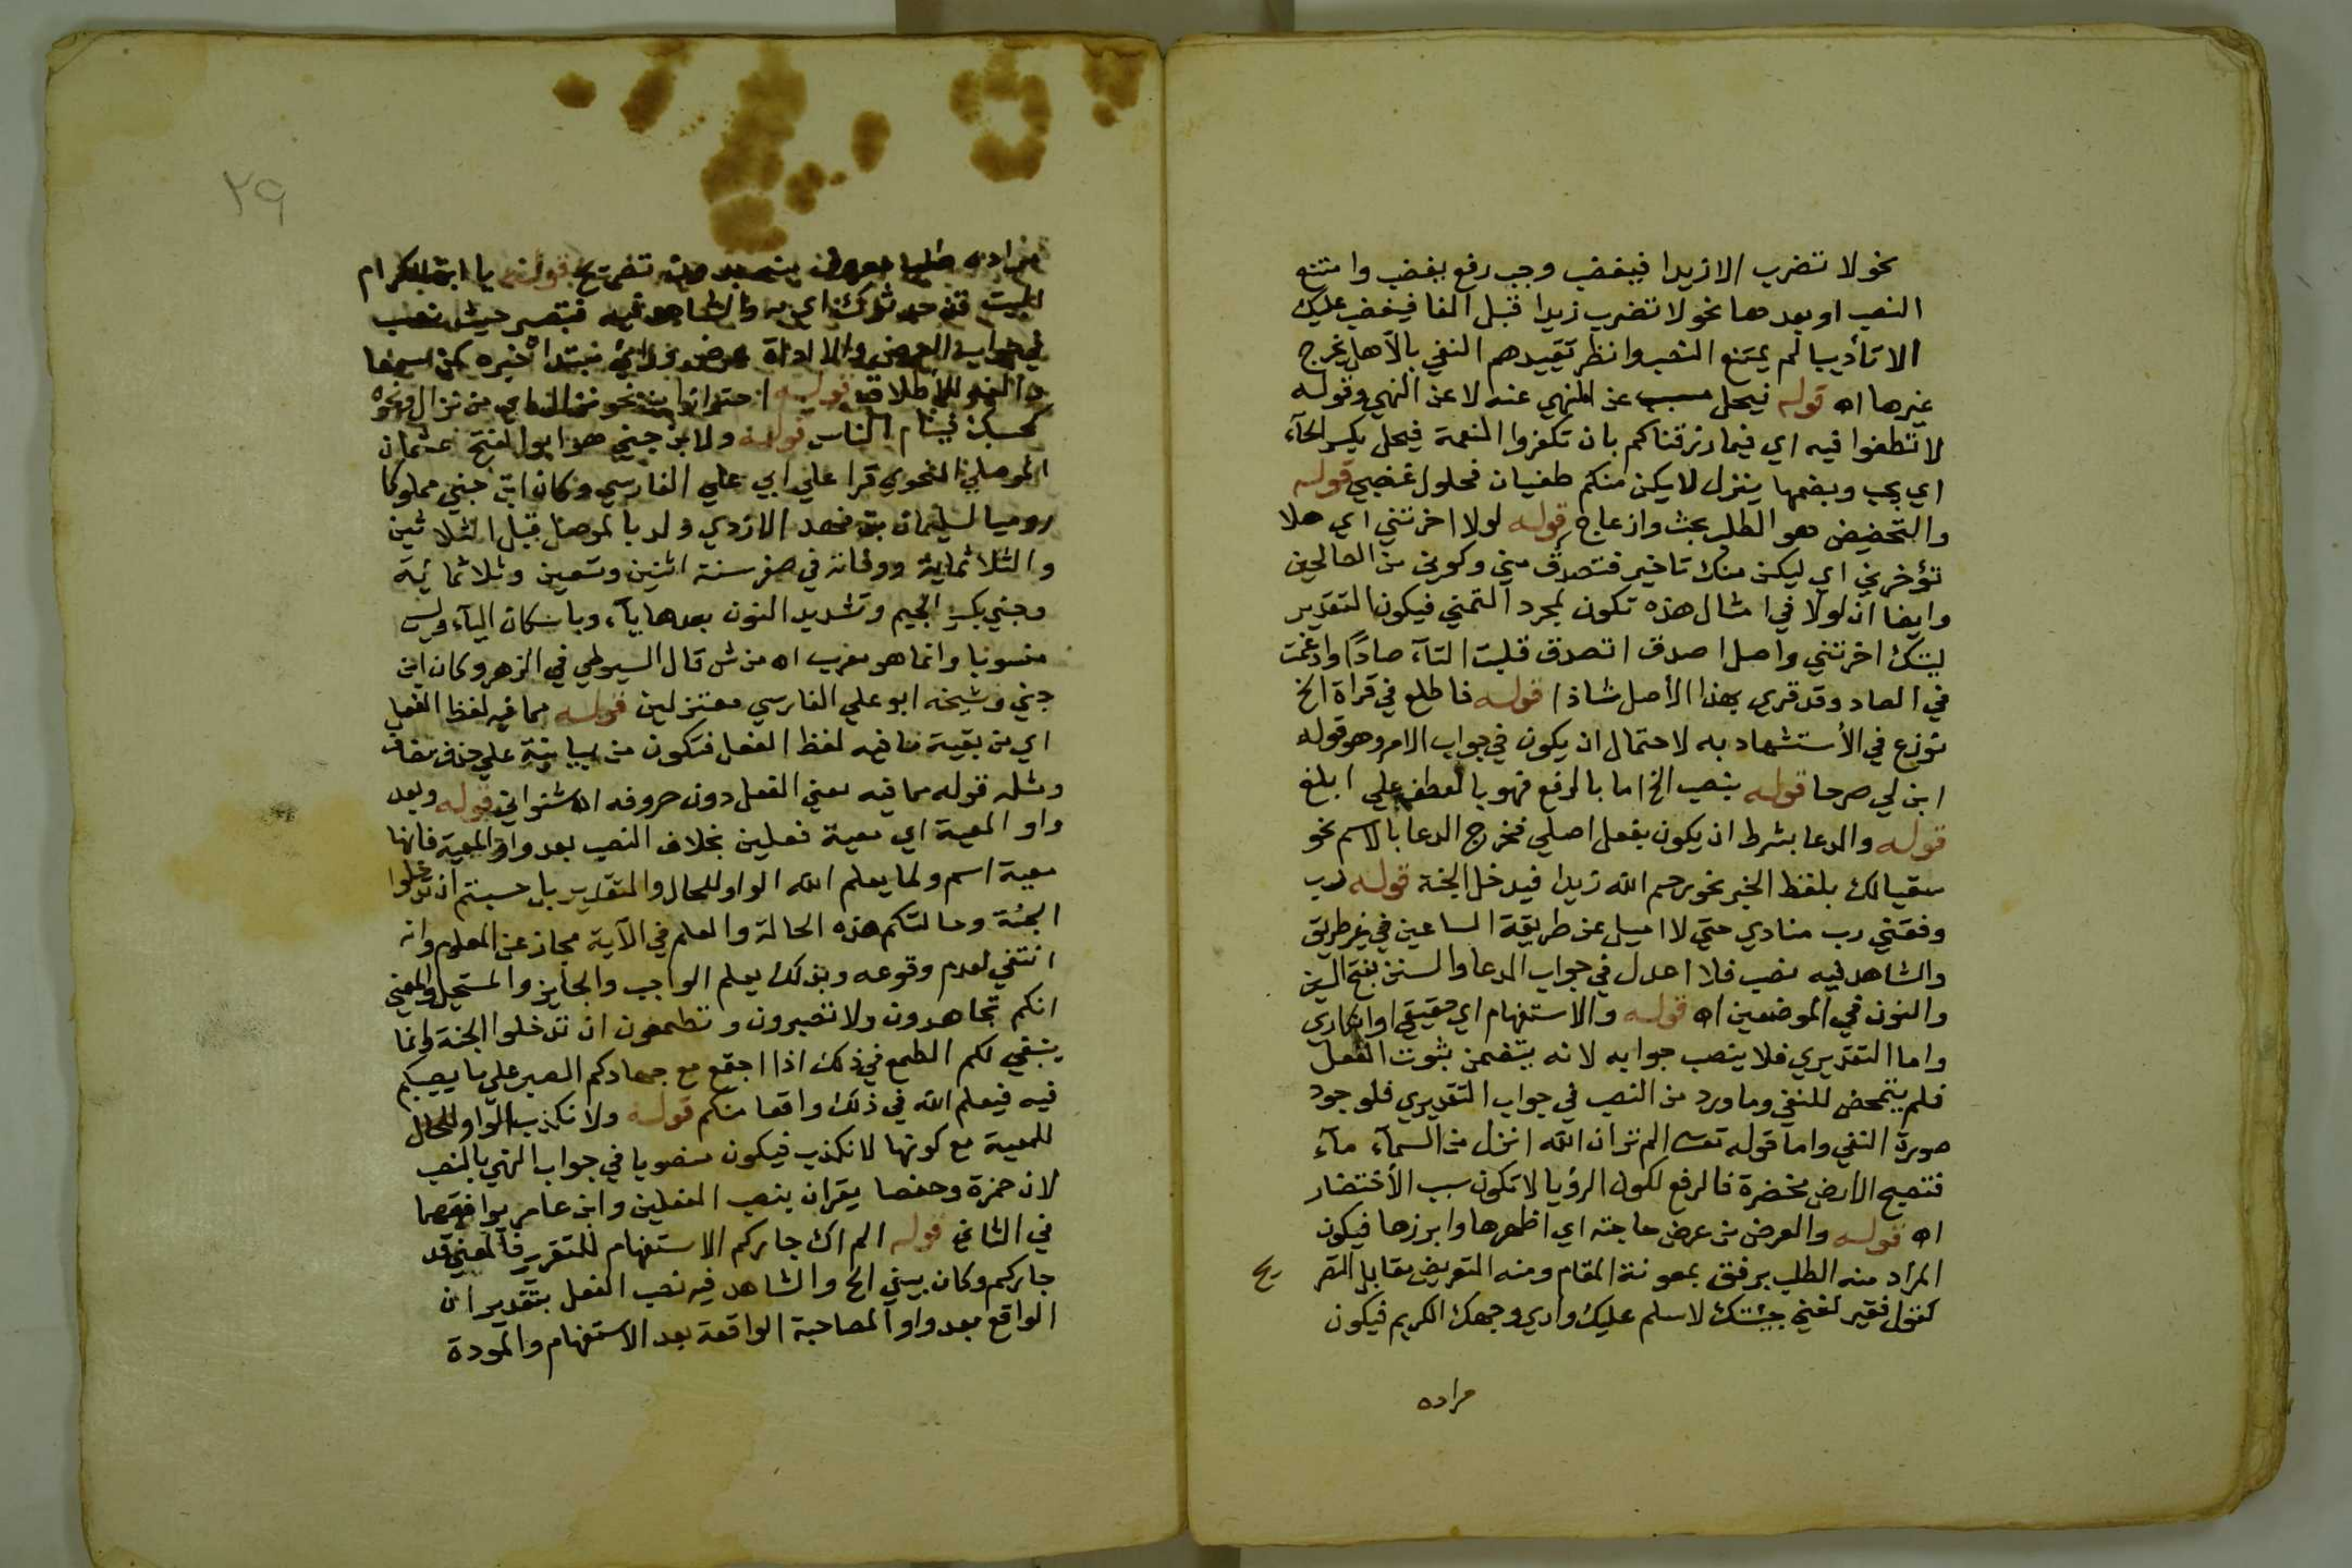 نحو لا تضرب الا زيدا فيغضب وجب رفع يغضب وامتنع
النصب او بعدها نحو لا تضرب زيدا قبل الفا فيغضب عليك
الا تأديبا لم يمتنع النصب وانظر تقييدهم النفي بالا هل يخرج
غيرها اه قوله فيحل مسبب عن المنهي عنه لا عن النهي وقوله
لا تطغوا فيه اي فيما رزقناكم بان تكفروا النعمة فيحل بكسر الحآء
اي يجب وبضمها ينزل لا يكن منكم طغيان فحلول غضبي قوله
والتحضيض هو الطلب بحث وازعاج قوله لولا اخرتني اي هلا
تؤخرني اي ليكن منك تاخير فتصدق مني وكوني من الصالحين
وايضا ان لولا في امثال هذه تكون لمجرد التمني فيكون التقدير
ليتك اخرتني واصل اصدق اتصدق قلبت التآء صادًا وادغمت
في الصاد وقد قري بهذا الأصل شاذا قوله فاطلع في قراة الخ
نوزع في الأستشهاد به لاحتمال ان يكون في جواب الامر وهو قوله
ابن لي صرحا قوله بنصب الخ اما بالرفع فهو بالعطف علي ابلغ
قوله والدعا بشرط ان يكون بفعل اصلي فخرج الدعا بالاسم نحو
سقيا لك بلفظ الخبر نحو رحم الله زيدا فيدخل الجنة قوله رب
وفقني رب منادي حتي لا اميل عن طريقة الساعين في خير طريق
والشاهد فيه نصب فلا اعدل في جواب الدعا والسنن بفتح السين
والنون في الموضعين اه قوله والاستفهام اي حقيقي او انكاري
واما التقديري فلا ينصب جوابه لانه يتضمن ثبوت الفعل
فلم يتمحض للنفي وما ورد من النصب في جواب التقديري فلوجود
صورة النفي واما قوله تعالى الم تر ان الله انزل من السمآء مآء
فتصبح الارض مخضرة فالرفع لكون الرؤيا لا تكون سبب الأخضرار
اه قوله والعرض من عرض حاجته اي اظهرها وابرزها فيكون
المراد منه الطلب برفق بمعونة المقام ومنه التعريض مقابل التصر يح
كقول فقير لغني جئتك لاسلم عليك واري وجهك الكريم فيكون
مراده
٢٩
مراده طلب معروف تصريح قوله يا ابن الكرام
البيت قد حدثوك اي به والشاهد فيه فتبصر حيث نصب
في جواب العرض والا اداة عرض فراء مبتدا خبره كمن سمعا
والفه للاطلاق قوله احترازا من نحو نزال ونحوه
حسبك فينام الناس قوله ولابن جني هو ابو الفتح عثمان
الموصلي النحوي قرا علي ابي علي الفارسي وكان ابن جني مملوكا
روميا لسليمان بن فهد الازدي ولد بالموصل قبل الثلاثين
والثلاثماية ووفاته في صفر سنة اثنين وتسعين وثلاثمائية
وجني بكسر الجيم وتشديد النون بعدها يآء وباسكان اليآء وليس
منسوبا وانما هو معرب اه من ش قال السيوطي في المزهر وكان ابن
جني وشيخه ابو علي الفارسي معتزلين قوله مما فيه لفظ الفعل
اي من بقية ما فيه لفظ الفعل فتكون من بيانية علي حذف مضاف
ومثله قوله مما فيه معني الفعل دون حروفه اه شنواني قوله وبعد
واو المعية اي معية فعلين بخلاف النصب بعد واو المعية فانها
معية اسم ولما يعلم الله الواو للحال والتقدير بل حسبتم ان تدخلوا
الجنة وحالتكم هذه الحالة والعلم في الآية مجاز عن المعلوم وانه
انتفي لعدم وقوعه وبذلك يعلم الواجب والجايز والمستحيل والمعني
انكم تجاهدون ولا تصبرون وتطمعون ان تدخلوا الجنة وانما
ينبغي لكم الطمع في ذلك اذا اجتمع مع جهادكم الصبر علي ما يصيبكم
فيه فيعلم الله في ذلك واقعا منكم قوله ولا نكذب الواو للحال
للمعية مع كونها لا نكذب فيكون منصوبا في جواب النهي بالنصب
لان حمزة وحفصا يقران بنصب الفعلين وابن عامر يوافقهما
في الثاني قوله الم اك جاركم الاستفهام للتقرير فالمعني قد
جاركم وكان بيني الخ والشاهد فيه نصب الفعل بتقدير ان
الواقع بعد واو المصاحبة الواقعة بعد الاستفهام والمودة